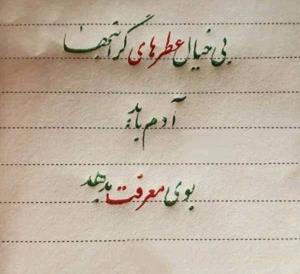 بی خیال عطرهای گرانبها
آدم باید
بوی معرفت بدهد